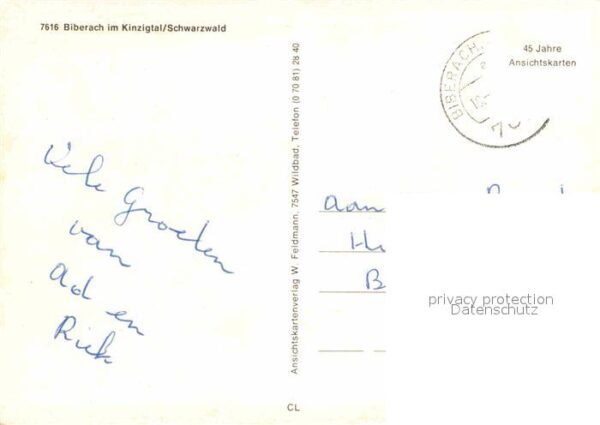 7616 Biberach im Kinzigtal/Schwarzwald
45 Jahre
Ansichtskarten
BIBERACH
Vele Groeten
van
Ad en
Riek
Ansichtskartenverlag W. Feldmann, 7547 Wildbad, Telefon (0 70 81) 28 40
Aan
B
privacy protection
Datenschutz
CL